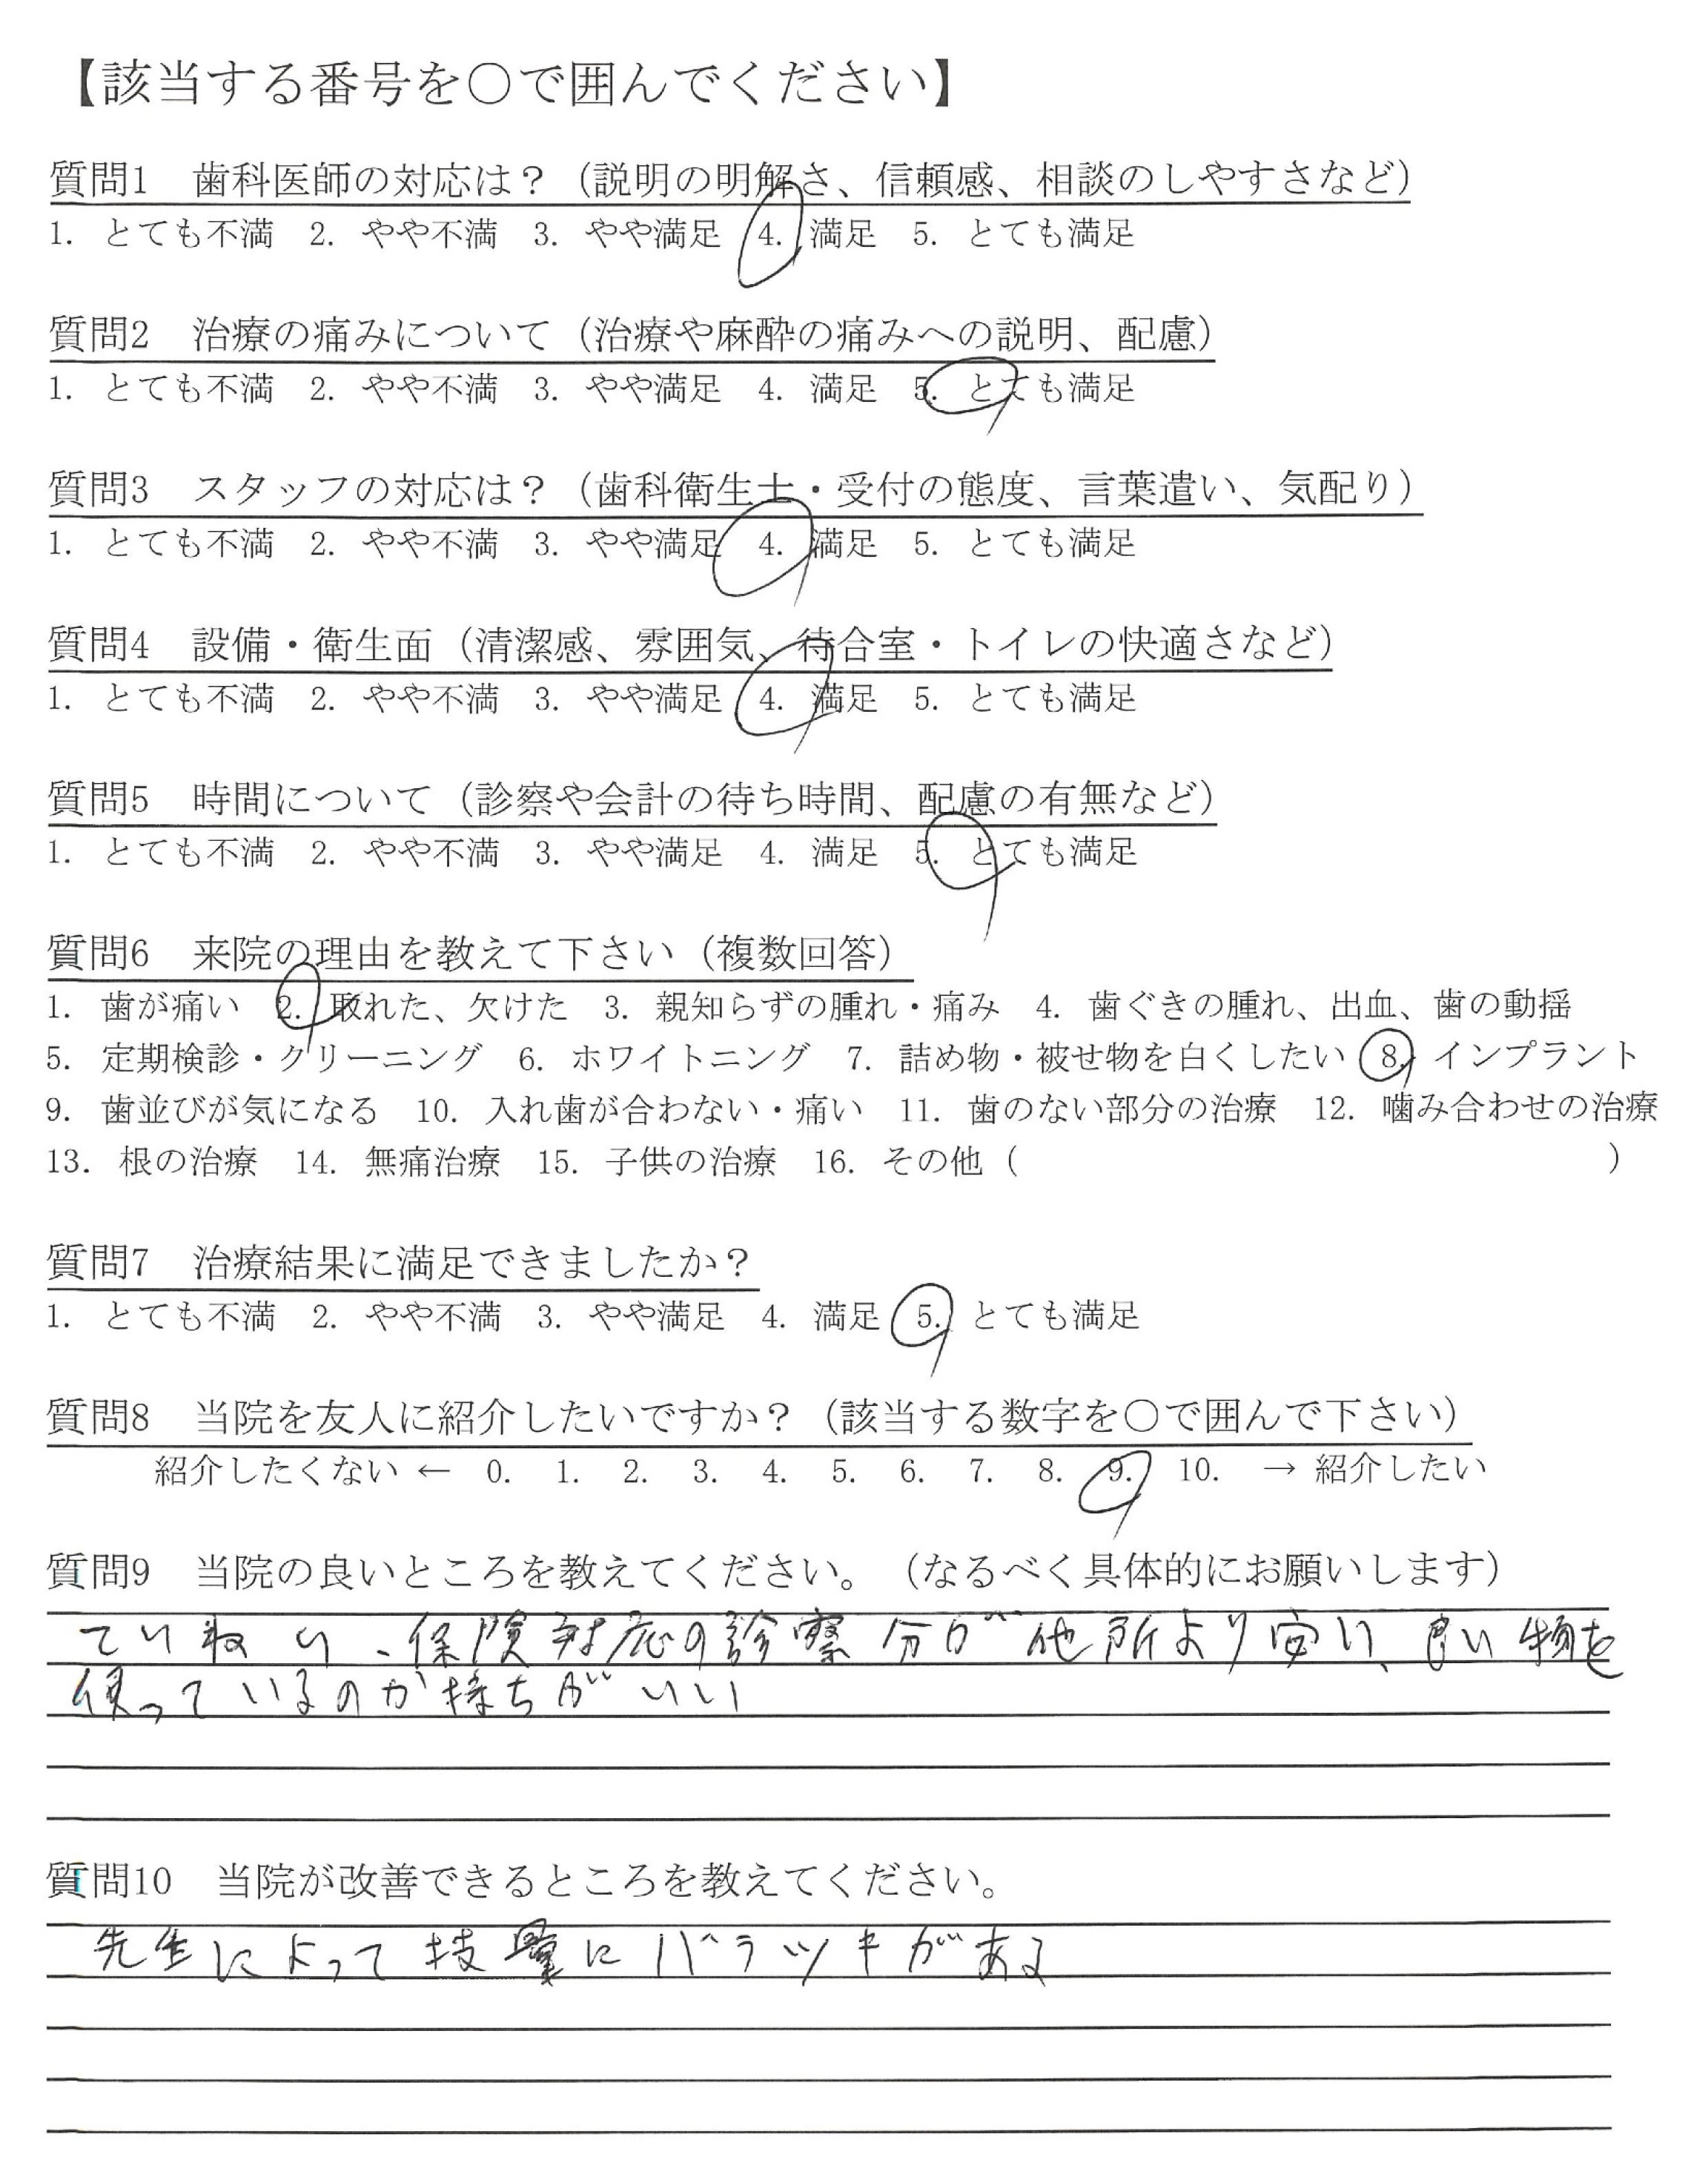 【該当する番号を〇で囲んでください】
質問1　歯科医師の対応は？（説明の明解さ、信頼感、相談のしやすさなど）
1. とても不満　2. やや不満　3. やや満足　4. 満足　5. とても満足
質問2　治療の痛みについて（治療や麻酔の痛みへの説明、配慮）
1. とても不満　2. やや不満　3. やや満足　4. 満足　5. とても満足
質問3　スタッフの対応は？（歯科衛生士・受付の態度、言葉遣い、気配り）
1. とても不満　2. やや不満　3. やや満足　4. 満足　5. とても満足
質問4　設備・衛生面（清潔感、雰囲気、待合室・トイレの快適さなど）
1. とても不満　2. やや不満　3. やや満足　4. 満足　5. とても満足
質問5　時間について（診察や会計の待ち時間、配慮の有無など）
1. とても不満　2. やや不満　3. やや満足　4. 満足　5. とても満足
質問6　来院の理由を教えて下さい（複数回答）
1. 歯が痛い　2. 取れた、欠けた　3. 親知らずの腫れ・痛み　4. 歯ぐきの腫れ、出血、歯の動揺
5. 定期検診・クリーニング　6. ホワイトニング　7. 詰め物・被せ物を白くしたい　8. インプラント
9. 歯並びが気になる　10. 入れ歯が合わない・痛い　11. 歯のない部分の治療　12. 噛み合わせの治療
13. 根の治療　14. 無痛治療　15. 子供の治療　16. その他（　　　）
質問7　治療結果に満足できましたか？
1. とても不満　2. やや不満　3. やや満足　4. 満足　5. とても満足
質問8　当院を友人に紹介したいですか？（該当する数字を〇で囲んで下さい）
紹介したくない ← 0. 1. 2. 3. 4. 5. 6. 7. 8. 9. 10. → 紹介したい
質問9　当院の良いところを教えてください。（なるべく具体的にお願いします）
ていねい、保険対応の診察分が他所より安い、良い物を
使っているのか持ちがいい
質問10　当院が改善できるところを教えてください。
先生によって技量にバラツキがある